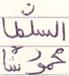 السلطا
محمود شا